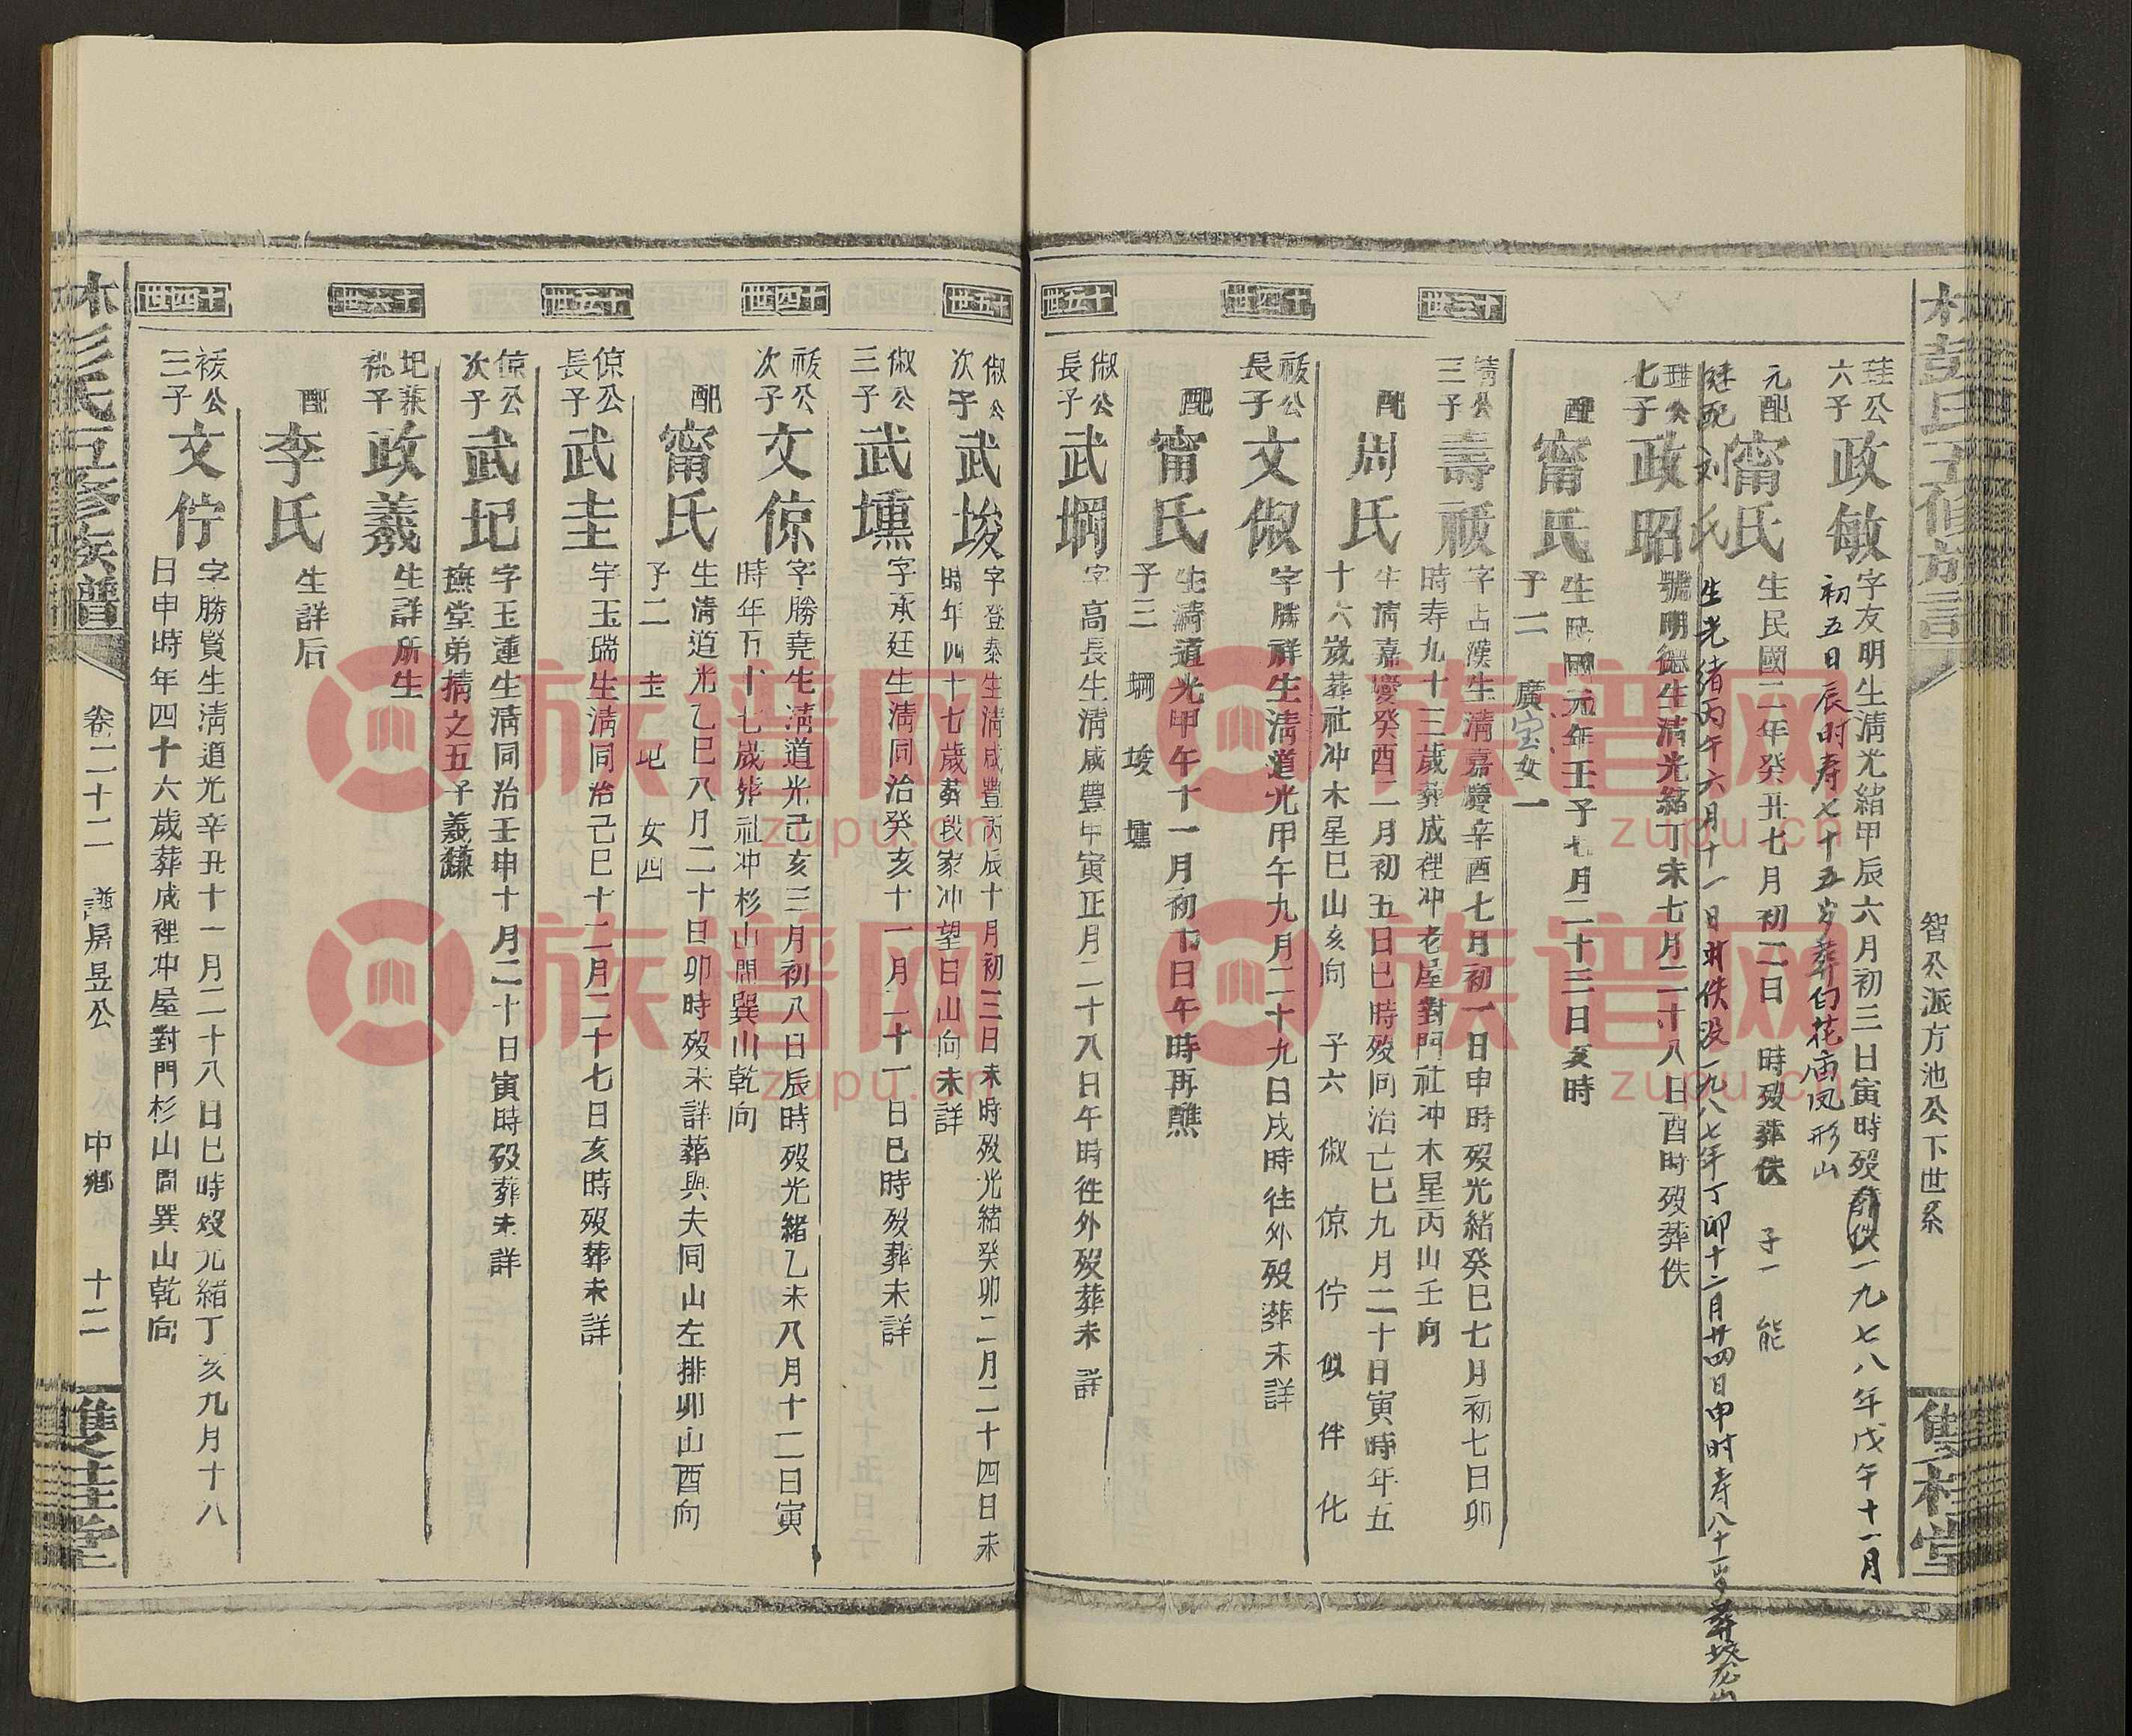 智公派方池公下世系
雙桂堂
珪公
六子
政敏
字友明生淸光緒甲辰六月初三日寅時歿葬佚一九七八年戊午十一月
初五日辰时寿七十五岁葬白花庙凤形山
元配
甯氏
生民國二年癸丑七月初二日 時歿葬佚 子一 能
继配刘氏
生光绪丙午六月十一日时佚没一九八七年丁卯十二月廿四日申时寿八十一岁葬
珪公
七子
政昭
號明德生淸光緒丁未七月二十八日酉時歿葬佚
配
甯氏
生民國元年壬子七月二十三日亥時
子二 廣宝女一
十三世
三子
壽祓
字占漢生淸嘉慶辛酉七月初一日申時歿光緒癸巳七月初七日卯
時寿九十三歲葬成裡冲老屋對門社冲木星丙山壬向
配
周氏
生淸嘉慶癸酉二月初五日巳時歿同治己巳九月二十日寅時年五
十六歲葬社冲木星巳山亥向 子六 俶 倞 佇 似 伴 化
十四世
祓公
長子
文俶
字勝祥生淸道光甲午九月二十九日戌時往外歿葬未詳
配
甯氏
生淸道光甲午十一月初十日午時再醮
子三 堈 埈 壎
十五世
俶公
長子
武堈
字高長生淸咸豐甲寅正月二十八日午時往外歿葬未詳
十五世
俶公
次子
武埈
字登泰生淸咸豐丙辰十月初三日未時歿光緒癸卯二月二十四日未
時年四十七歲葬段家冲望日山向未詳
俶公
三子
武壎
字承廷生淸同治癸亥十一月二十一日巳時歿葬未詳
十四世
祓公
次子
文倞
字勝堯生淸道光己亥三月初八日辰時歿光緒乙未八月十二日寅
時年五十七歲葬社冲杉山閒巽山乾向
配
甯氏
生淸道光乙巳八月二十日卯時歿未詳葬與夫同山左排卯山酉向
子二 圭 圯 女四
十五世
倞公
長子
武圭
字玉瑞生淸同治己巳十二月二十七日亥時歿葬未詳
倞公
次子
武圯
字玉蓮生淸同治壬申十月二十日寅時歿葬未詳
撫堂弟掅之五子義馦
十六世
圯葉
祧子
政義
生詳所生
配
李氏
生詳后
十四世
祓公
三子
文佇
字勝賢生淸道光辛丑十一月二十八日巳時歿光緒丁亥九月十八
日申時年四十六歲葬成裡冲屋對門杉山閒巽山乾向
木彭氏五修族譜
卷二十二
謎房昱公
中鄕
十二
雙桂堂
族谱网
zupu.cn
族谱网
zupu.cn
族谱网
zupu.cn
族谱网
zupu.cn